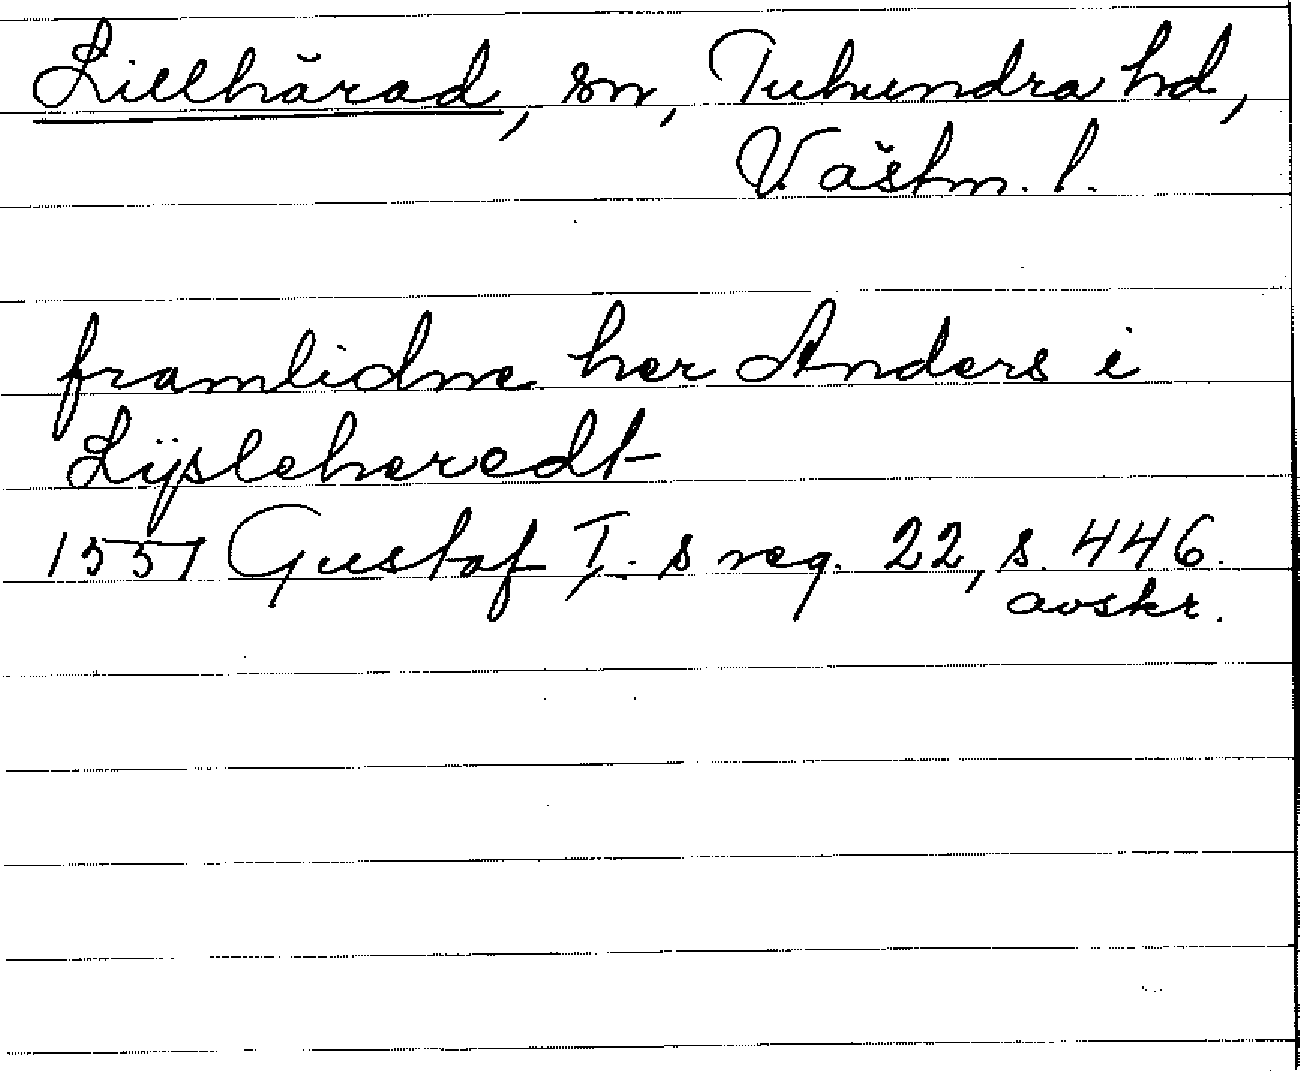 Lillhärad, sn, Tuhundra hd,
Västm. l.
framlidne her Anders i
Lÿsleheredt
1551 Gustaf I. s reg. 22, s. 446.
avskr.